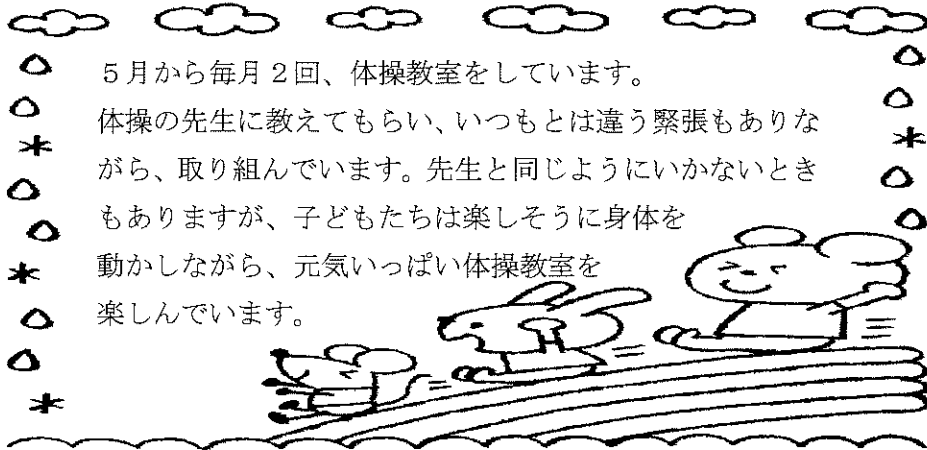 ５月から毎月２回、体操教室をしています。
体操の先生に教えてもらい、いつもとは違う緊張もありな
がら、取り組んでいます。先生と同じようにいかないとき
もありますが、子どもたちは楽しそうに身体を
動かしながら、元気いっぱい体操教室を
楽しんでいます。